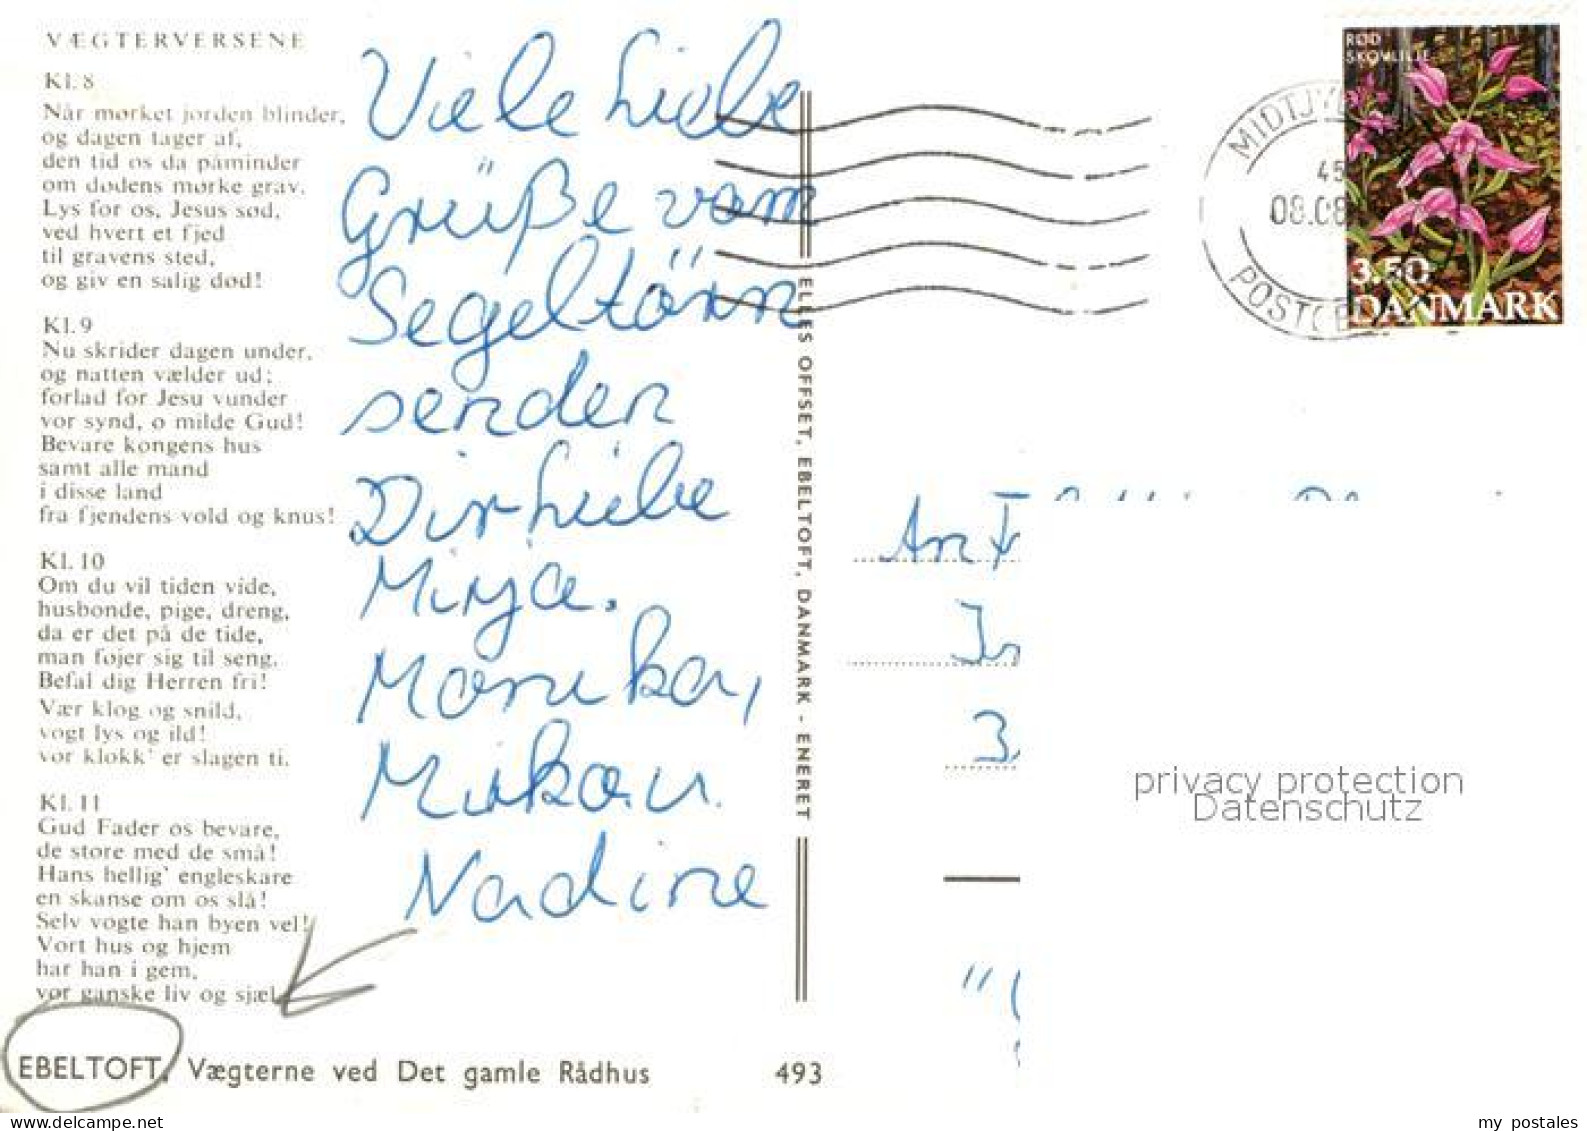 VÆGTERVERSENE
Kl. 8
Når mørket jorden blinder,
og dagen tager af,
den tid os da påminder
om dødens mørke grav.
Lys for os, Jesus sød,
ved hvert et fjed
til gravens sted,
og giv en salig død!
Kl. 9
Nu skrider dagen under,
og natten vælder ud;
forlad for Jesu vunder
vor synd, o milde Gud!
Bevare kongens hus
samt alle mand
i disse land
fra fjendens vold og knus!
Kl. 10
Om du vil tiden vide,
husbonde, pige, dreng,
da er det på de tide,
man føjer sig til seng.
Befal dig Herren fri!
Vær klog og snild,
vogt lys og ild!
vor klokk' er slagen ti.
Kl. 11
Gud Fader os bevare,
de store med de små!
Hans hellig' engleskare
en skanse om os slå!
Selv vogte han byen vel!
Vort hus og hjem
har han i gem,
vor ganske liv og sjæl
EBELTOFT, Vægterne ved Det gamle Rådhus
493
Viele Liebe
Grüße vom
Segeltörn
senden
Dir Liebe
Mirja.
Monika,
Mirko u.
Nadine
ELLES OFFSET, EBELTOFT, DANMARK - ENERET
RØD
SKOVLILJE
3.50
DANMARK
MIDTJY
45
08.08
POSTC
An
privacy protection
Datenschutz
www.delcampe.net
my postales